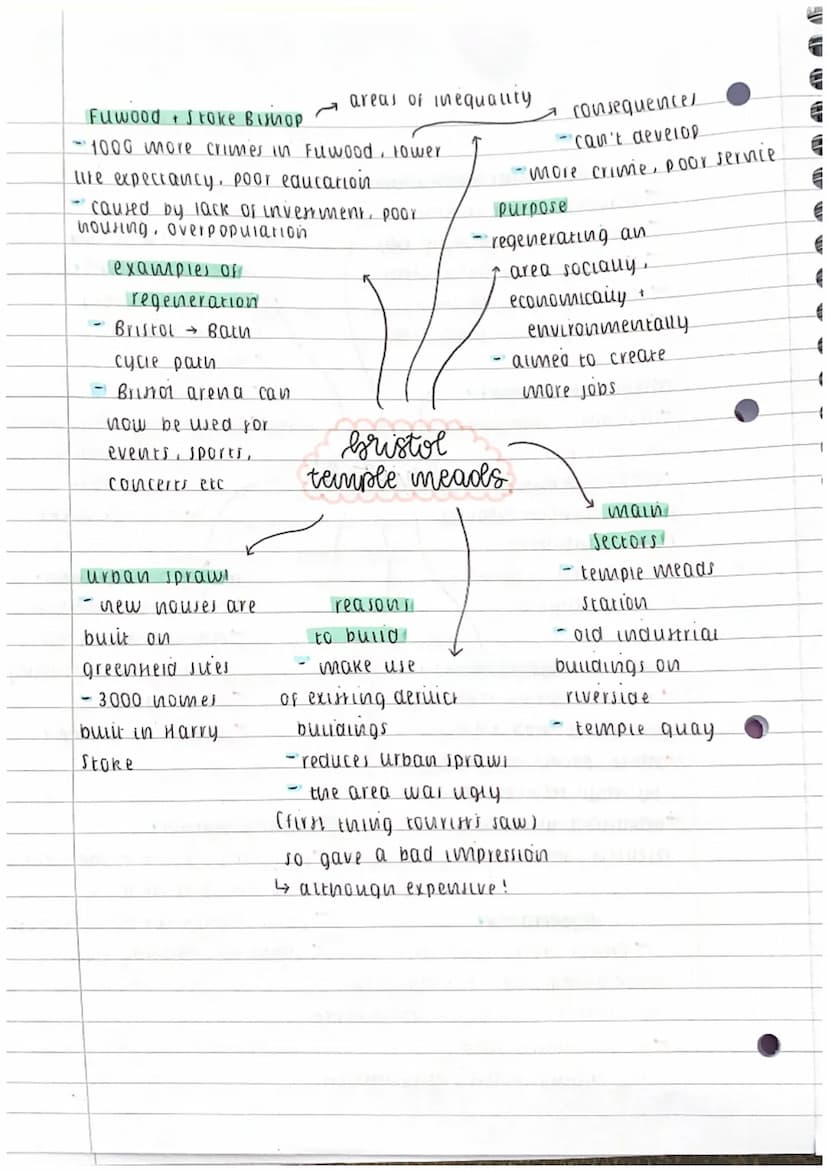 Fulwood + Stoke Bishop → areas of inequality → consequences
- 1000 more crimes in Fulwood, lower
life expectancy, poor education
- caused by lack of investment, poor
housing, overpopulation
- can't develop
- more crime, poor service
purpose
- regenerating an
area socially,
economically +
environmentally
- aimed to create
more jobs
examples of
regeneration
- Bristol → Bath
cycle path
- Bristol arena can
now be used for
events, sports,
concerts etc
bristol
temple meads
main
sectors
- temple meads
station
- old industrial
buildings on
riverside
- temple quay
urban sprawl
- new houses are
built on
greenfield sites
- 3000 homes
built in Harry
Stoke
reasons
to build
- make use
of existing derilict
buildings
- reduces urban sprawl
- the area was ugly
(first thing tourists saw)
so gave a bad impression
↳ although expensive!